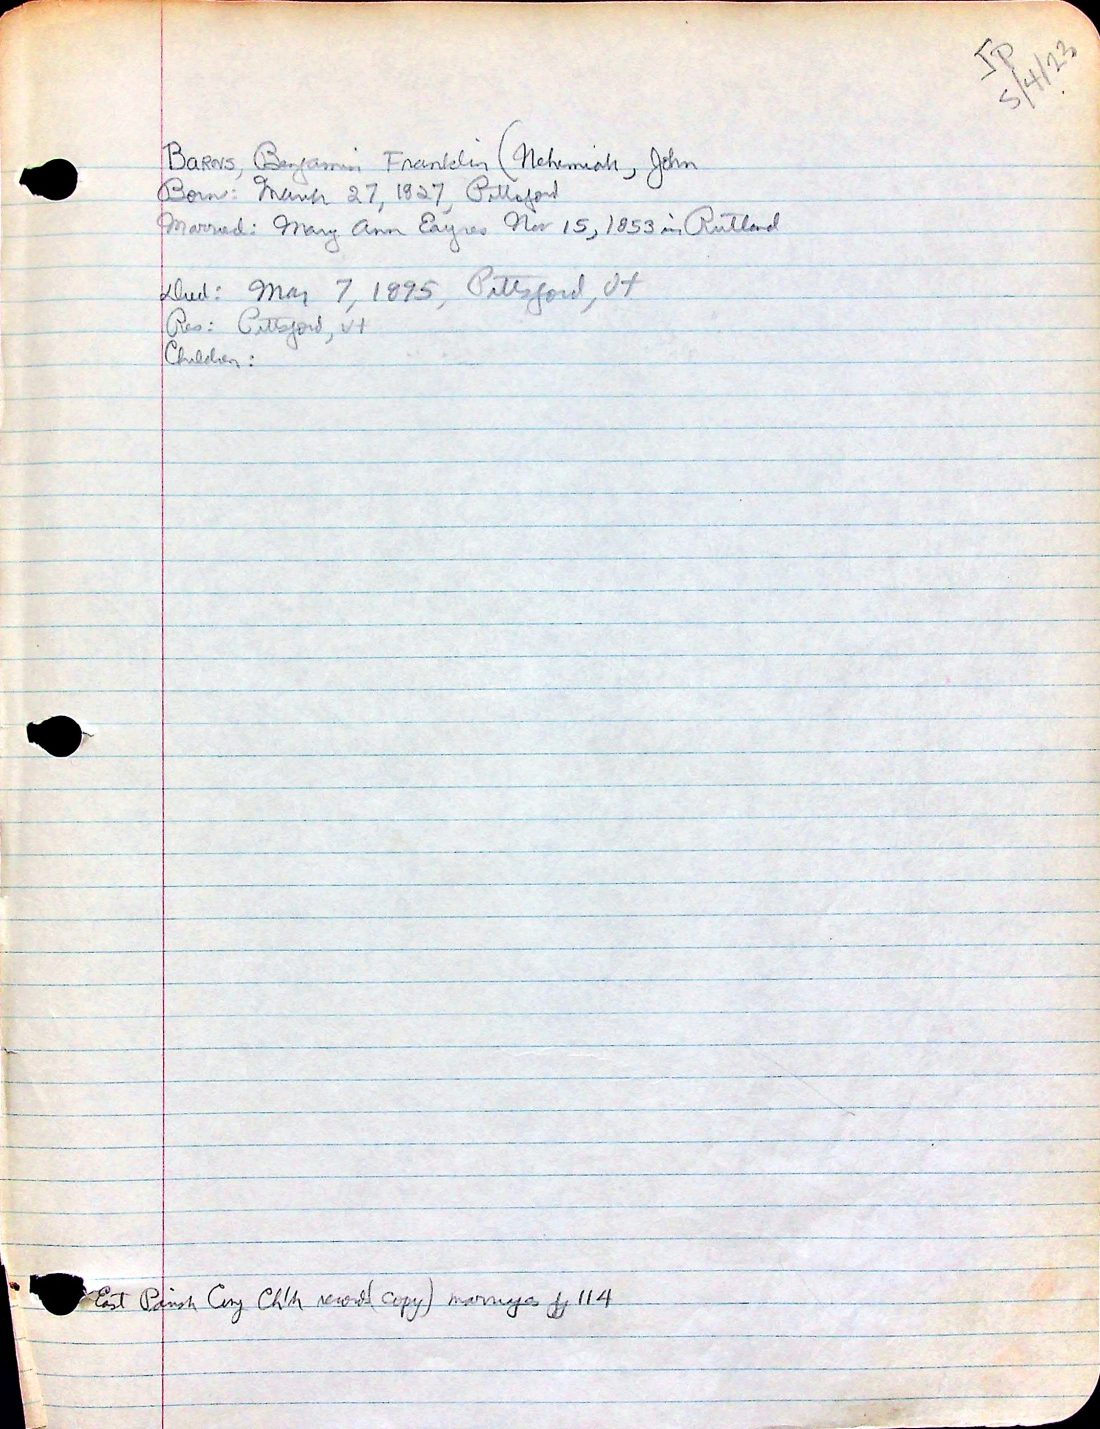 JP
5/4/23
BARNS, Benjamin Franklin (Nehemiah, John
Born: March 27, 1827, Pittsford
Married: Mary Ann Eayres Nov 15, 1853 in Rutland
Died: May 7, 1895, Pittsford, Vt
Res: Pittsford, Vt
Children:
East Parish Cong Ch'h record (copy) marriages pg 114